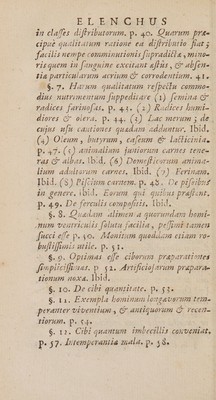 ELENCHUS
in classes distributorum. p. 40. Quarum præ-
cipuè qualitatum ratione ea distributio fiat;
facilis nempe comminutionis supradictæ, mino-
ris quem in sanguine excitant æstûs, & absen-
tia particularum acrium & corrodentium. 41.
§. 7. Harum qualitatum respectu commo-
dius nutrimentum suppeditare (1) semina &
radices farinosas. p. 41. (2) Radices humi-
diores & olera. p. 44. (3) Lac merum; de
cujus usu cautiones quædam adduntur. Ibid.
(4) Oleum, butyrum, caseum & lacticinia.
p. 47. (5) animalium juniorum carnes tene-
ras & albas. Ibid. (6) Domesticorum anima-
lium adultorum carnes. Ibid. (7) Ferinam.
Ibid. (8) Piscium carnem. p. 48. De piscibus
in genere. ibid. Eorum qui potius præstent.
p. 49. De ferculis compositis. Ibid.
§. 8. Quædam alimenta quorundam homi-
num ventriculis solutu facilia, pessimi tamen
succi esse p. 50. Monitum quoddam etiam ro-
bustissimis utile. p. 51.
§. 9. Optimas esse ciborum præparationes
simplicissimas. p. 52. Artificiosarum præpara-
tionum noxa. Ibid.
§. 10. De cibi quantitate. p. 53.
§. 11. Exempla hominum longævorum tem-
peranter viventium, & antiquorum & recen-
tiorum. p. 54.
§. 12. Cibi quantum imbecillis conveniat.
p. 57. Intemperantiæ mala. p. 58.